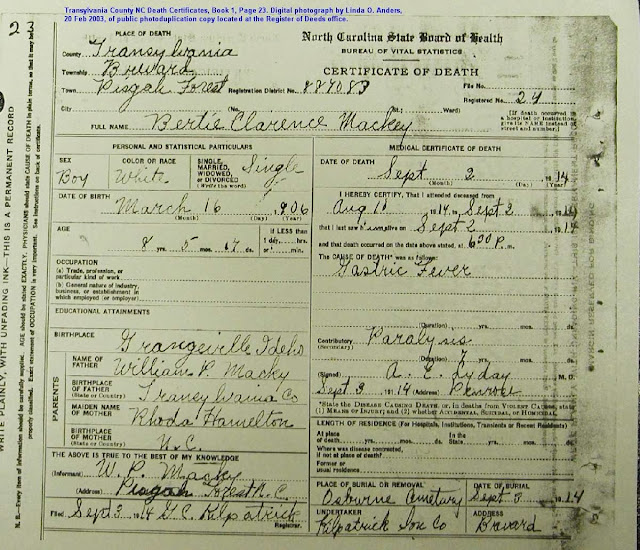 Transylvania County NC Death Certificates, Book 1, Page 23. Digital photograph by Linda O. Anders,
20 Feb 2003, of public photoduplication copy located at the Register of Deeds office.
23
PLACE OF DEATH
County Transylvania
Township Brevard
Town Pisgah Forest
City
North Carolina State Board of Health
BUREAU OF VITAL STATISTICS
CERTIFICATE OF DEATH
Registration District No. 887083
File No.
Registered No. 24
(No. St.; Ward)
[If death occurred in a hospital or institution give its NAME instead of street and number.]
FULL NAME Bertie Clarence Mackey
PERSONAL AND STATISTICAL PARTICULARS
SEX Boy
COLOR OR RACE White
SINGLE, MARRIED, WIDOWED, OR DIVORCED (Write the word) Single
DATE OF BIRTH
March 16 1906
(Month) (Day) (Year)
AGE
8 yrs. 5 mos. 17 ds.
If LESS than 1 day, hrs. or min.
OCCUPATION
(a) Trade, profession, or particular kind of work
(b) General nature of industry, business, or establishment in which employed (or employer)
EDUCATIONAL ATTAINMENTS
BIRTHPLACE Grangeville Ideho
PARENTS
NAME OF FATHER William P Macky
BIRTHPLACE OF FATHER (State or Country) Transylvania Co
MAIDEN NAME OF MOTHER Rhoda Hamelton
BIRTHPLACE OF MOTHER (State or Country) N.C.
THE ABOVE IS TRUE TO THE BEST OF MY KNOWLEDGE
(Informant) W. P. Macky
(Address) Pisgah Forest N.C.
Filed Sept 3 1914 G.C. Kilpatrick
Registrar.
MEDICAL CERTIFICATE OF DEATH
DATE OF DEATH
Sept 2 1914
(Month) (Day) (Year)
I HEREBY CERTIFY, That I attended deceased from
1914, to Sept 2 1914
that I last saw him alive on Sept 2 1914
and that death occurred on the date above stated, at 630 P. m.
The CAUSE OF DEATH* was as follows:
Gastric Fever
(Duration) yrs. mos. ds.
Contributory (Secondary) Paralysis
(Duration) 7 yrs. mos. ds.
(Signed) A. E. Lyday M. D.
Sept 3 1914 (Address) Penrose
*State the DISEASE CAUSING DEATH, or, in deaths from VIOLENT CAUSES, state (1) MEANS OF INJURY; and (2) whether ACCIDENTAL, SUICIDAL, or HOMICIDAL.
LENGTH OF RESIDENCE (For Hospitals, Institutions, Transients or Recent Residents)
At place of death yrs. mos. ds. In the State yrs. mos. ds.
Where was disease contracted, if not at place of death?
Former or usual residence
PLACE OF BURIAL OR REMOVAL Osburne Cemetury
DATE OF BURIAL Sept 3 1914
UNDERTAKER Kilpatrick Son Co
ADDRESS Brevard
WRITE PLAINLY, WITH UNFADING INK—THIS IS A PERMANENT RECORD
N. B.—Every item of information should be carefully supplied. AGE should be stated EXACTLY. PHYSICIANS should state CAUSE OF DEATH in plain terms, so that it may be properly classified. Exact statement of OCCUPATION is very important. See instructions on back of certificate.